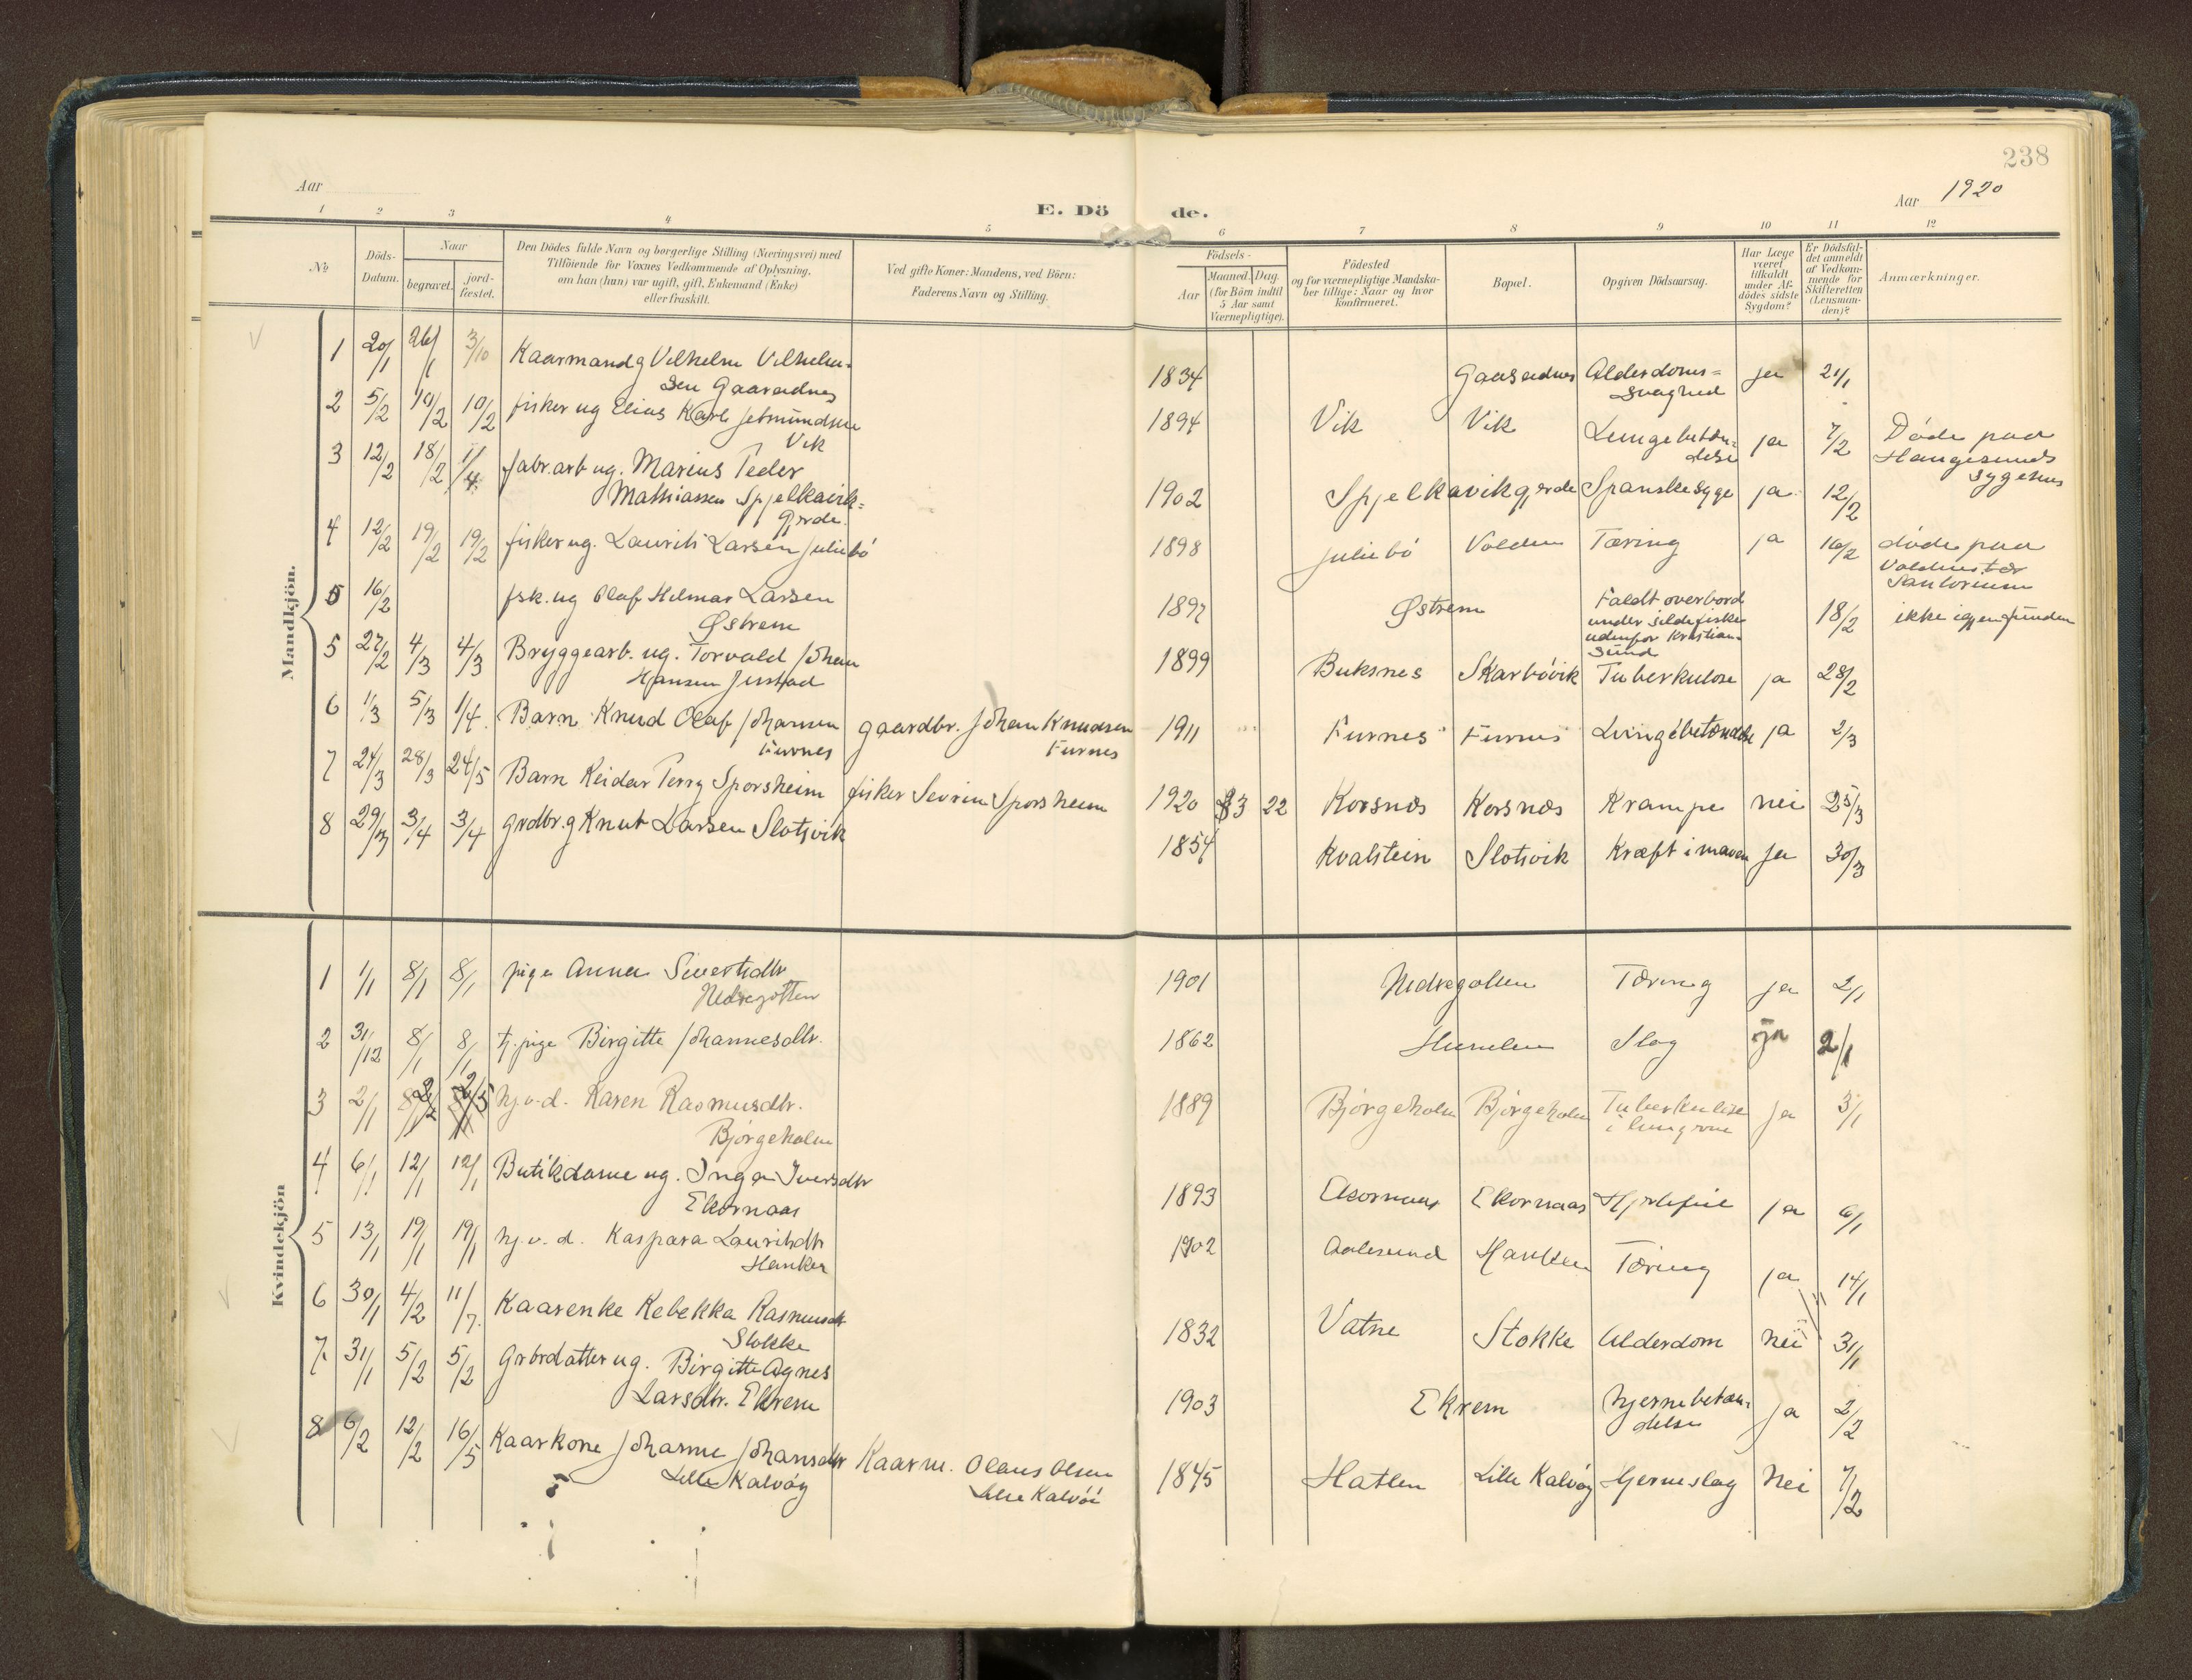 238
Aar
Aar 1920
E. Dö de.
1 2 3 4 5 6 7 8 9 10 11 12
No
Döds-Datum.
Naar
begravet.
jord-fæstet.
Den Dödes fulde Navn og borgerlige Stilling (Næringsvei) med
Tilföiende for Voxnes Vedkommende af Oplysning,
om han (hun) var ugift, gift, Enkemand (Enke)
eller fraskilt.
Ved gifte Koner: Mandens, ved Börn:
Faderens Navn og Stilling.
Födsels-
Aar
Maaned. Dag.
(for Börn indtil
5 Aar samt
Værnepligtige).
Födested
og for værnepligtige Mandska-
ber tillige: Naar og hvor
konfirmeret.
Bopæl.
Opgiven Dödsaarsag.
Har Læge
været
tilkaldt
under Af-
dödes sidste
Sygdom?
Er Dödsfal-
det anmeldt
af Vedkom-
mende for
Skifteretten
(Lensman-
den)?
Anmærkninger.
Mandkjön.
1 20/1 26/1 3/10 Kaarmand g Vilhelm Vilhelm-
sen Gaaseidnes 1834 Gaaseidnes Alderdoms=
svaghed ja 21/1
2 5/2 10/2 10/2 fisker ug Elias Karl Jetmundsen
Vik 1894 Vik Vik Lungebetæn=
delse ja 7/2 Døde paa
Haugesunds
sygehus
3 12/2 18/2 1/4 fabr.arb ug. Marius Peder
Mathiassen Spjelkavik=
gjrde. 1902 Spjelkavikgjrde Spanskesyge ja 12/2
4 12/2 19/2 19/2 fisker ug. Laurits Larsen Juliebö 1898 Juliebö Volden Tæring ja 16/2 døde paa
Voldens tbr
Santorium
5 16/2 fsk. ug Olaf Hilmar Larsen
Østrem 1897 Østrem Faldt overbord
under sildefiske
udenfor Kristian=
sund 18/2 ikke igjenfunden
5 27/2 4/3 4/3 Bryggearb. ug. Torvald Johan
Hansen Justad 1899 Buksnes Skarbövik Tuberkulose ja 28/2
6 1/3 5/3 1/4. Barn Knud Olaf Johansen
Furnes gaardbr. Johan Knudsen
Furnes 1911 Furnes Furnes Lungebetændelse ja 2/3
7 24/3 28/3 24/5 Barn Reidar Perry Sporsheim fisker Severin Sporsheim 1920 3 22 Korsnæs Korsnæs Krampe nei 25/3
8 29/3 3/4 3/4 grdbr. g Knut Larsen Slotsvik 1854 Kvalstein Slotsvik Kræft i maven ja 30/3
Kvindekjön
1 1/1 8/1 8/1 pige Anna Sivertsdtr
Nedregotten 1901 Nedregotten Tæring ja 2/1
2 31/12 8/1 8/1 tj. pige Birgitte Johannesdtr. 1862 Humlen Slag ja 2/1
3 2/1 2/2 2/5 hj.v.d. Karen Rasmusdtr.
Bjørgeholm 1889 Bjørgeholm Bjørgeholm Tuberkulose
i lungerne ja 3/1
4 6/1 12/1 12/1 Butikdame ug. Inga Iversdtr
Ekornaas 1893 Ekornaas Ekornaas Hjertefeil ja 6/1
5 13/1 19/1 19/1 hj.v.d. Kaspara Lauritsdtr
Hanken 1902 Aalesund Hanken Tæring ja 14/1
6 30/1 4/2 11/7. Kaarenke Rebekka Rasmusdtr
Stokke 1832 Vatne Stokke Alderdom nei 31/1
7 31/1 5/2 5/2 Grbrdatter ug. Birgitte Agnes
Larsdtr. Ekrem 1903 Ekrem hjernebetæn=
delse ja 2/2
8 6/2 12/2 16/5 Kaarkone Johanne Johansdtr
Lille Kalvöy Kaarm. Olaus Olsen
Lille Kalvöi 1845 Hatlen Lille Kalvöy Hjerneslag Nei 7/2